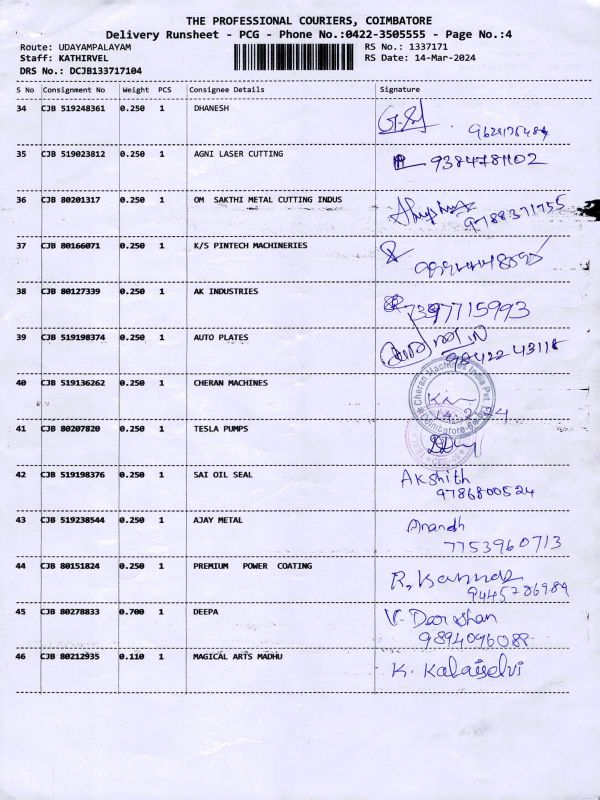 THE PROFESSIONAL COURIERS, COIMBATORE
Delivery Runsheet - PCG - Phone No.:0422-3505555 - Page No.:4
Route: UDAYAMPALAYAM RS No.: 1337171
Staff: KATHIRVEL RS Date: 14-Mar-2024
DRS No.: DCJB133717104
S No Consignment No Weight PCS Consignee Details Signature
34 CJB 519248361 0.250 1 DHANESH
35 CJB 519023812 0.250 1 AGNI LASER CUTTING 9384781102
36 CJB 80201317 0.250 1 OM SAKTHI METAL CUTTING INDUS
9788371755
37 CJB 80166071 0.250 1 K/S PINTECH MACHINERIES
38 CJB 80127339 0.250 1 AK INDUSTRIES
7397715993
39 CJB 519198374 0.250 1 AUTO PLATES
9842243118
40 CJB 519136262 0.250 1 CHERAN MACHINES
Cheran Machines India Pvt Ltd
Coimbatore
41 CJB 80207820 0.250 1 TESLA PUMPS
42 CJB 519198376 0.250 1 SAI OIL SEAL Akshith
9786800524
43 CJB 519238544 0.250 1 AJAY METAL Anandh
7753960713
44 CJB 80151824 0.250 1 PREMIUM POWER COATING
9445786989
45 CJB 80278833 0.700 1 DEEPA V. Darshan
9894096089
46 CJB 80212935 0.110 1 MAGICAL ARTS MADHU K. Kalaiselvi